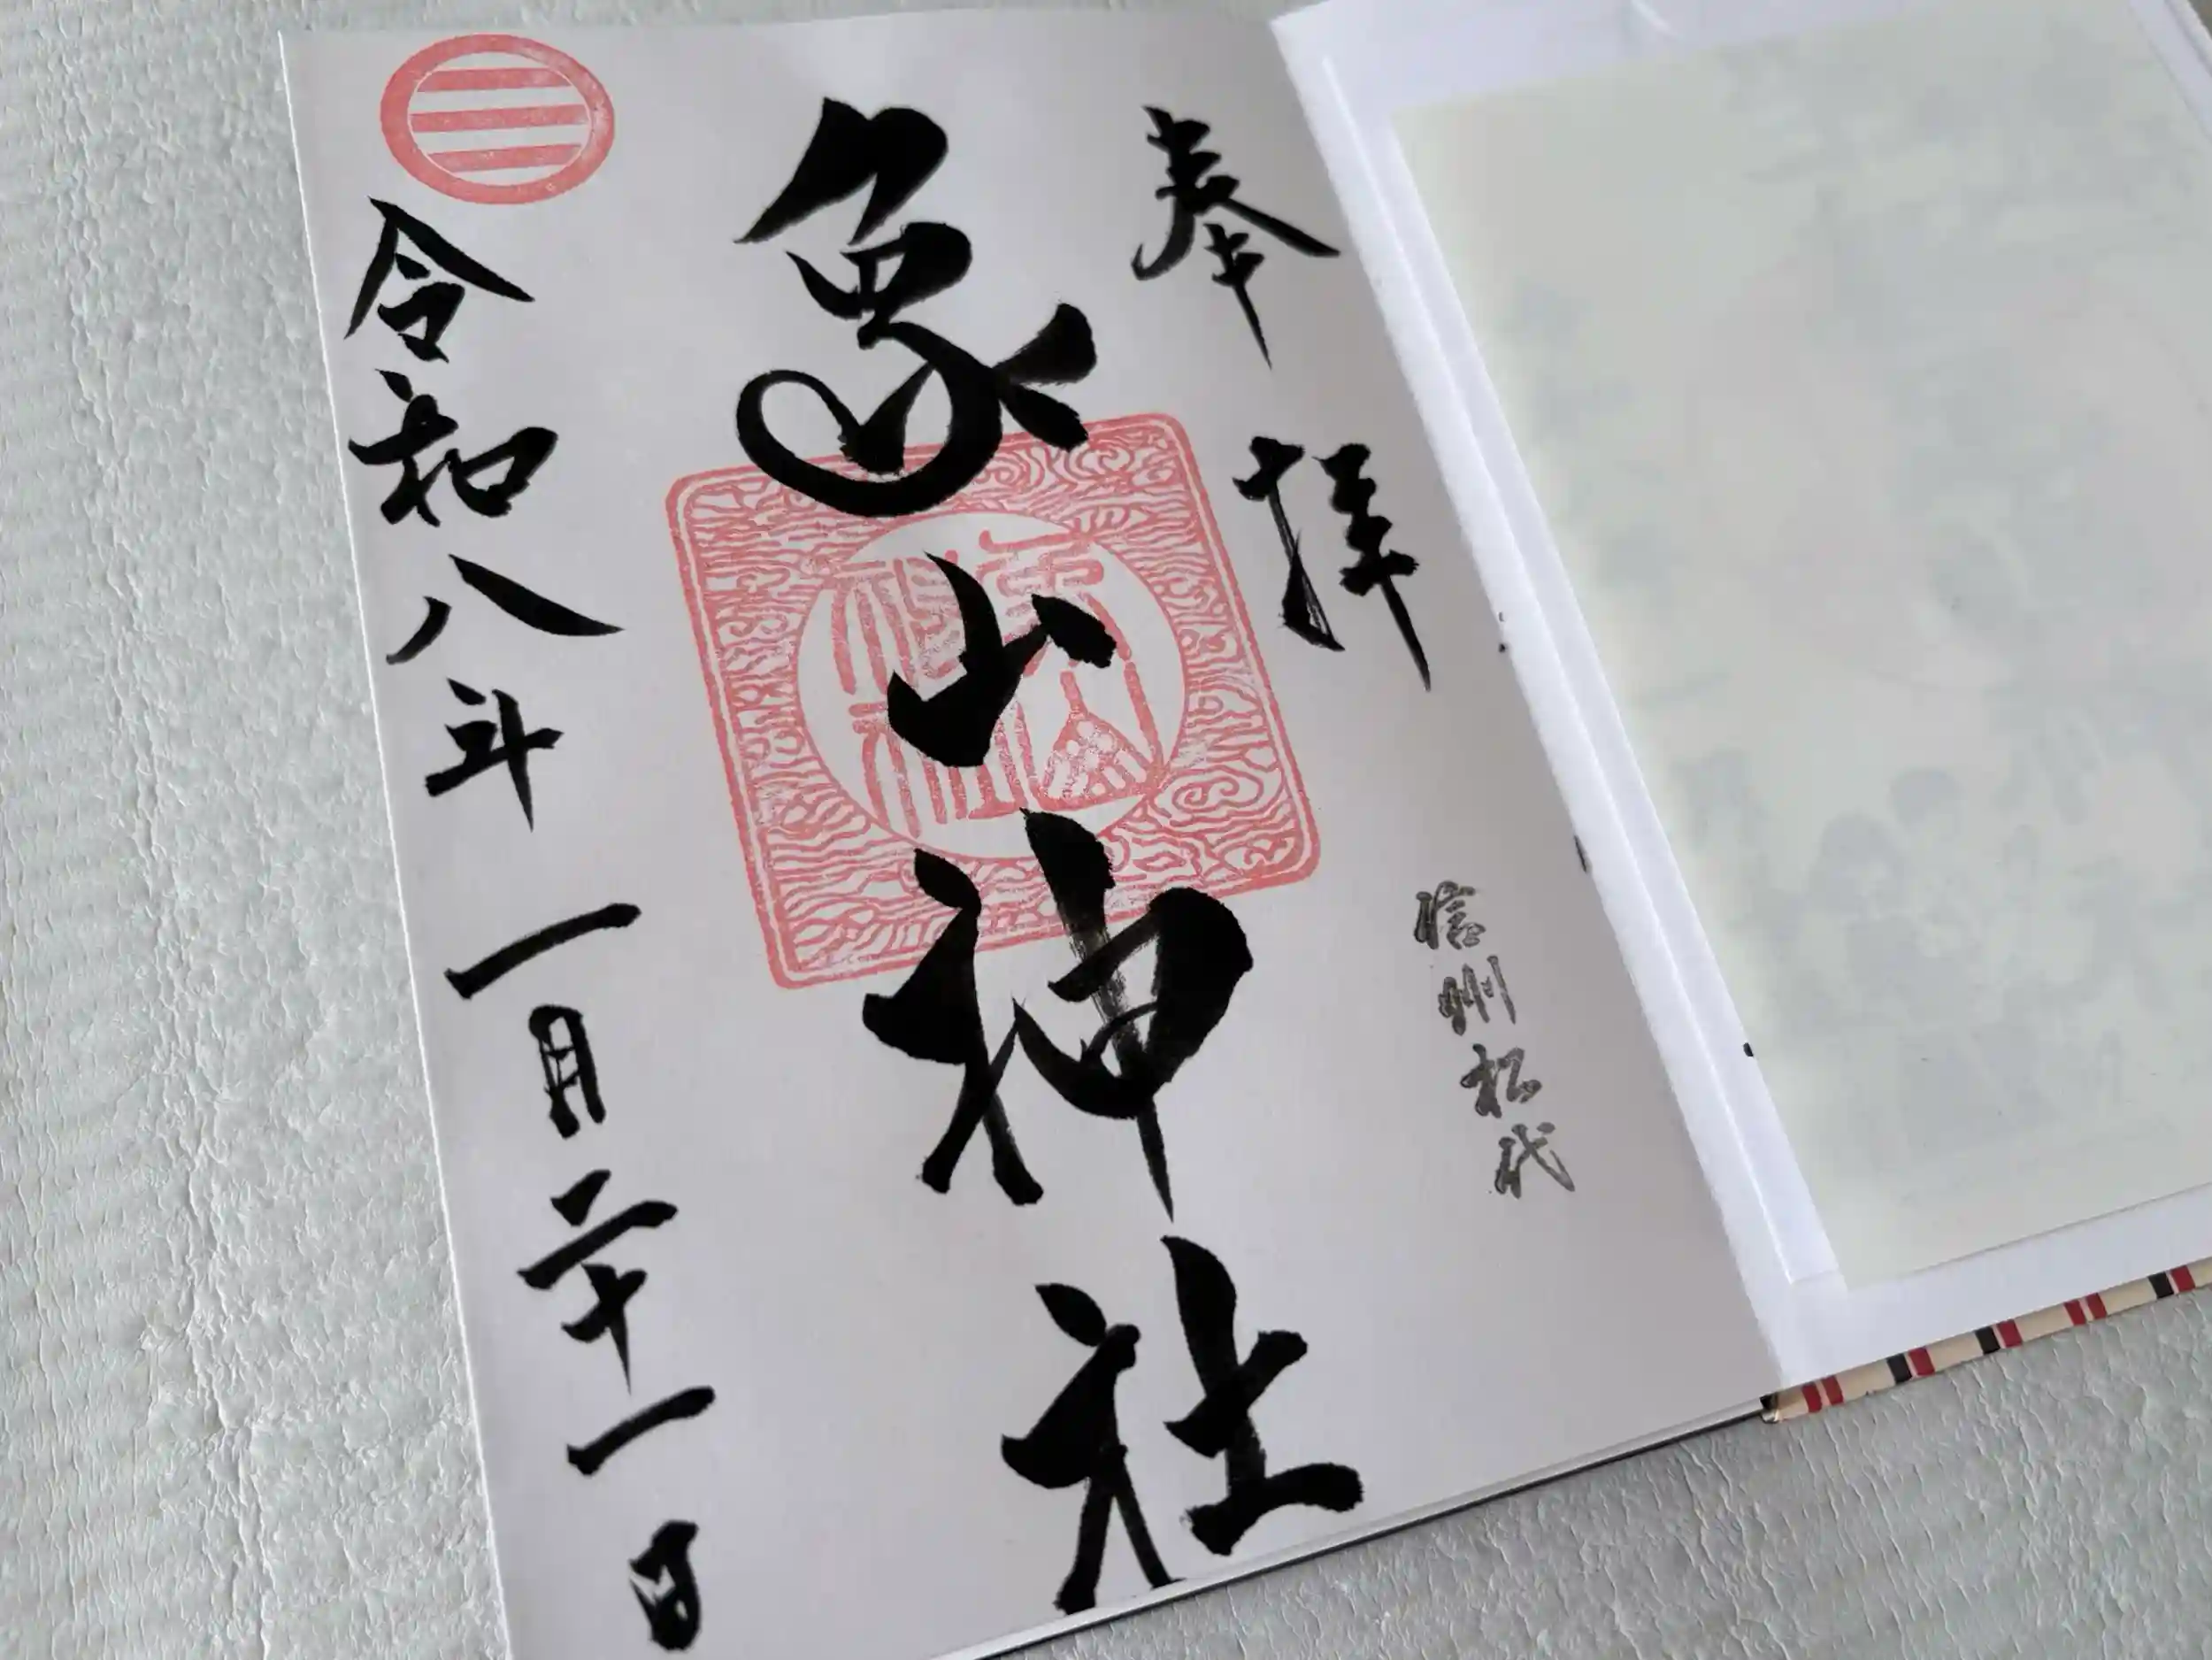 奉拝
信州松代
象山神社
象山神社
令和八年一月二十一日